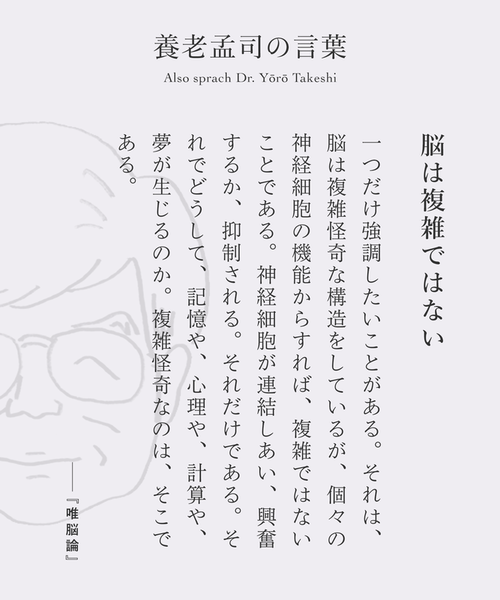 養老孟司の言葉
Also sprach Dr. Yōrō Takeshi
脳は複雑ではない
一つだけ強調したいことがある。それは、
脳は複雑怪奇な構造をしているが、個々の
神経細胞の機能からすれば、複雑ではない
ことである。神経細胞が連結しあい、興奮
するか、抑制される。それだけである。そ
れでどうして、記憶や、心理や、計算や、
夢が生じるのか。複雑怪奇なのは、そこで
ある。
──『唯脳論』